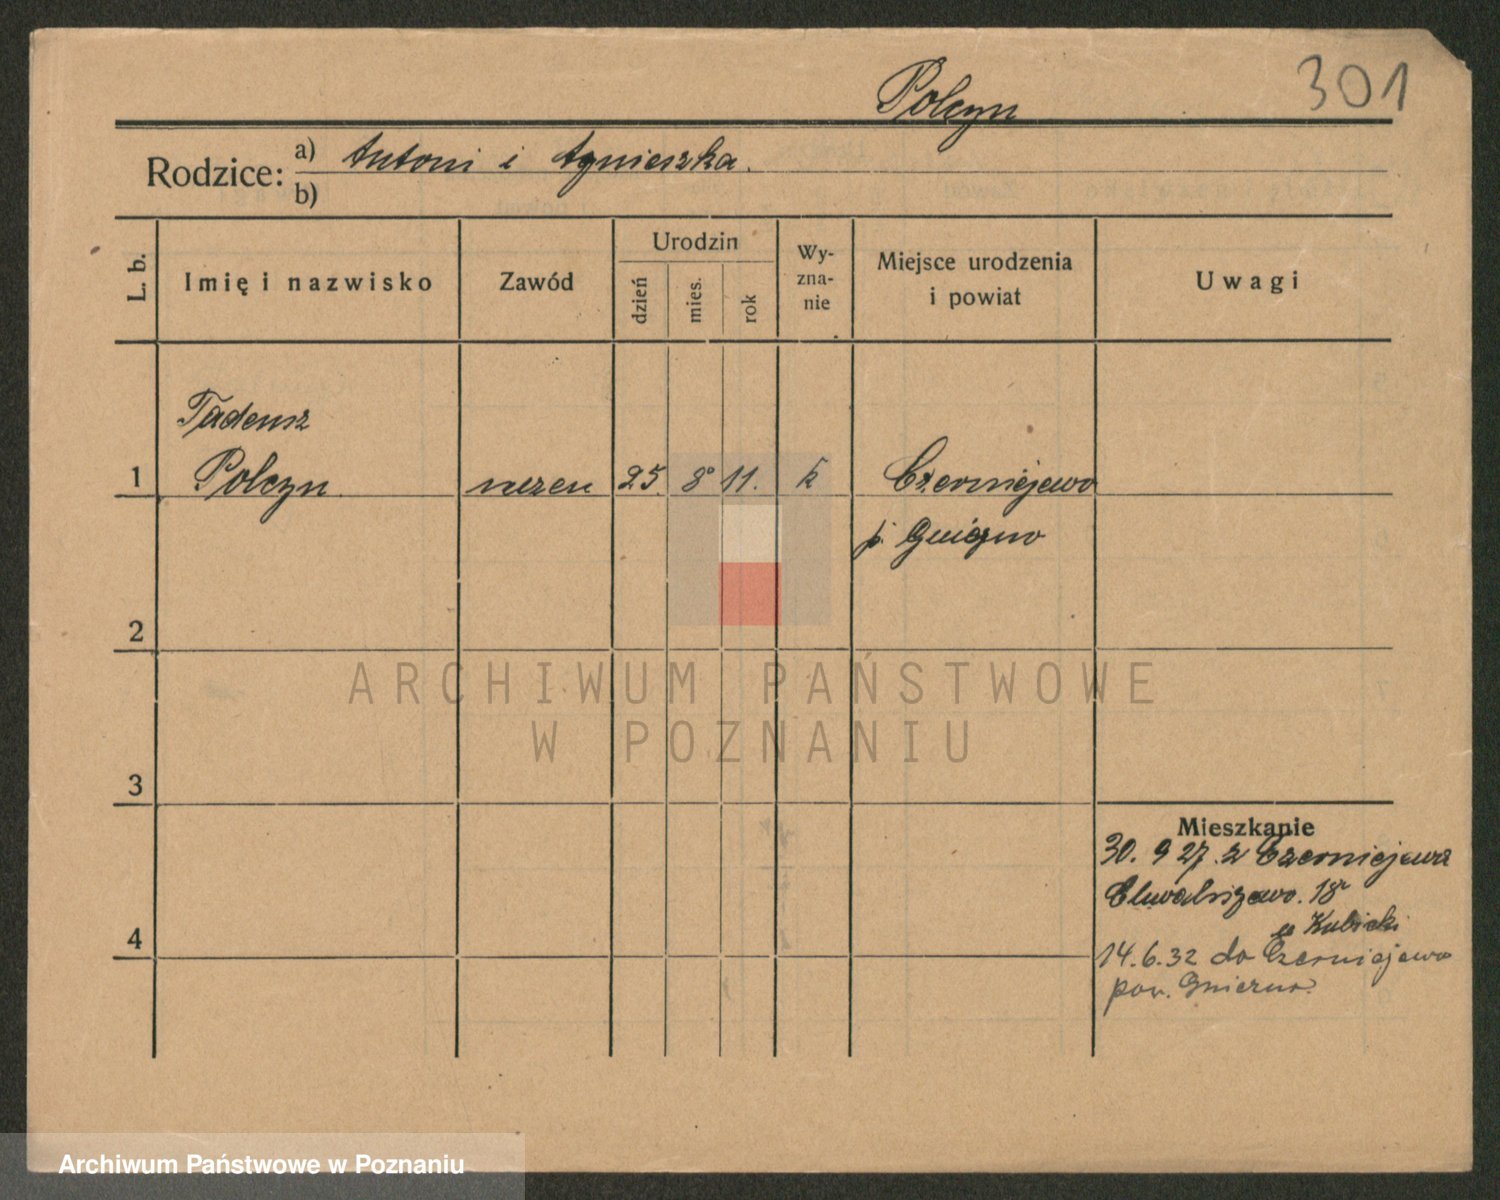 301
Polczyn
Rodzice: a) Antoni i Agnieszka.
b)
L. b.
Imię i nazwisko
Zawód
Urodzin
dzień
mies.
rok
Wy-
zna-
nie
Miejsce urodzenia
i powiat
Uwagi
Tadeusz
1 Polczyn uczeń 25. 8 11. k Czerniejewo
p. Gniezno
2
ARCHIWUM PAŃSTWOWE
W POZNANIU
3
Mieszkanie
30. 9 27. z Czerniejewa
Chwaliszewo. 18
u Kubicki
4
14.6.32 do Czerniejewo
pow. Gniezno
Archiwum Państwowe w Poznaniu